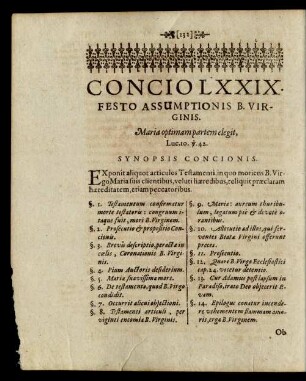 [132]
CONCIO LXXIX.
FESTO ASSUMPTIONIS B. VIR-
GINIS.
Maria optimam partem elegit,
Luc. 10. ℣. 42.
SYNOPSIS CONCIONIS.
Exponit aliquot articulos Testamenti, in quo moriens B. Vir-
go Maria suis clientibus, veluti hæredibus, reliquit præclaram
hæreditatem, etiam peccatoribus.
§. 1. Testamentum confirmatur
morte testatoris: congruum
taque fuit, mori B. Virginem.
§. 2. Prosecutio & propositio Con-
cionis.
§. 3. Brevis descriptio, peracta in
cœlis, Coronationis B. Virgi-
nis.
§. 4. Pium Auctoris desiderium.
§. 5. Maria suavissima mors.
§. 6. De testamento, quod B. Virgo
condidit.
§. 7. Occurrit alicui objectioni.
§. 8. Testamenti articuli, per
viginti encomia B. Virginis.
§. 9. Maria: aurum thuribu-
lum, legatum piè & devotè o-
rantibus.
§. 10. Allocutio ad illos, qui fer-
ventes Beatæ Virgini afferunt
preces.
§. 11. Prosecutio.
§. 12. Quare B. Virgo Ecclesiastici
cap. 24. vocetur detentio.
§. 13. Cur Adamus post lapsum in
Paradiso, irato Deo objecerit E-
vam.
§. 14. Epilogus conatur incende-
re vehementem flammam amo-
ris, erga B. Virginem.
Ob